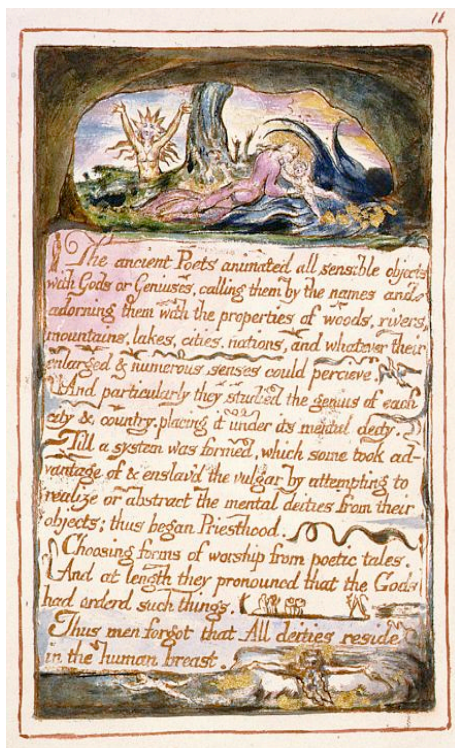 11
The ancient Poets animated all sensible objects
with Gods or Geniuses, calling them by the names and
adorning them with the properties of woods, rivers,
mountains, lakes, cities, nations, and whatever their
enlarged & numerous senses could percieve.
And particularly they studied the genius of each
city & country, placing it under its mental deity.
Till a system was formed, which some took ad-
vantage of & enslav'd the vulgar by attempting to
realize or abstract the mental deities from their
objects; thus began Priesthood.
Choosing forms of worship from poetic tales.
And at length they pronounced that the Gods
had orderd such things.
Thus men forgot that All deities reside
in the human breast.